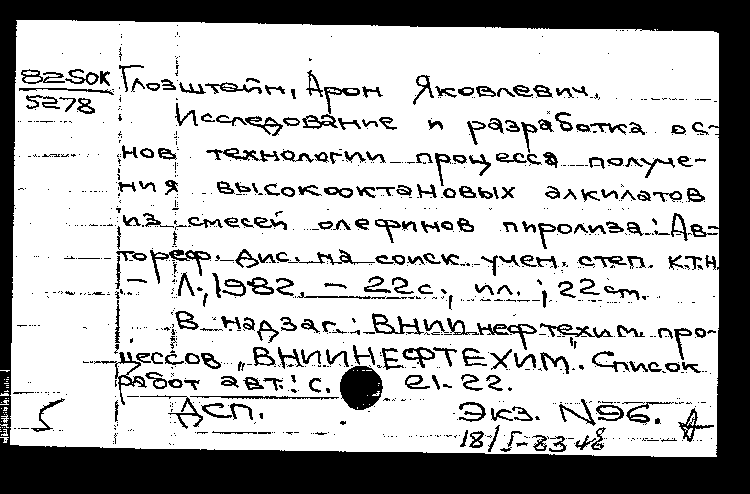 82-5OK Глозштейн, Арон Яковлевич.
5278
Исследование и разработка ос-
нов технологии процесса получе-
ния высокооктановых алкилатов
из смесей олефинов пиролиза: Ав-
тореф. дис. на соиск. учен. степ. к.т.н.
- Л., 1982. - 22 с., ил.; 22 см.
В надзаг.: ВНИИ нефтехим. про-
цессов "ВНИИНЕФТЕХИМ". Список
работ авт.: с. 21-22.
5 ДСП. Экз. N96.
18/I-83